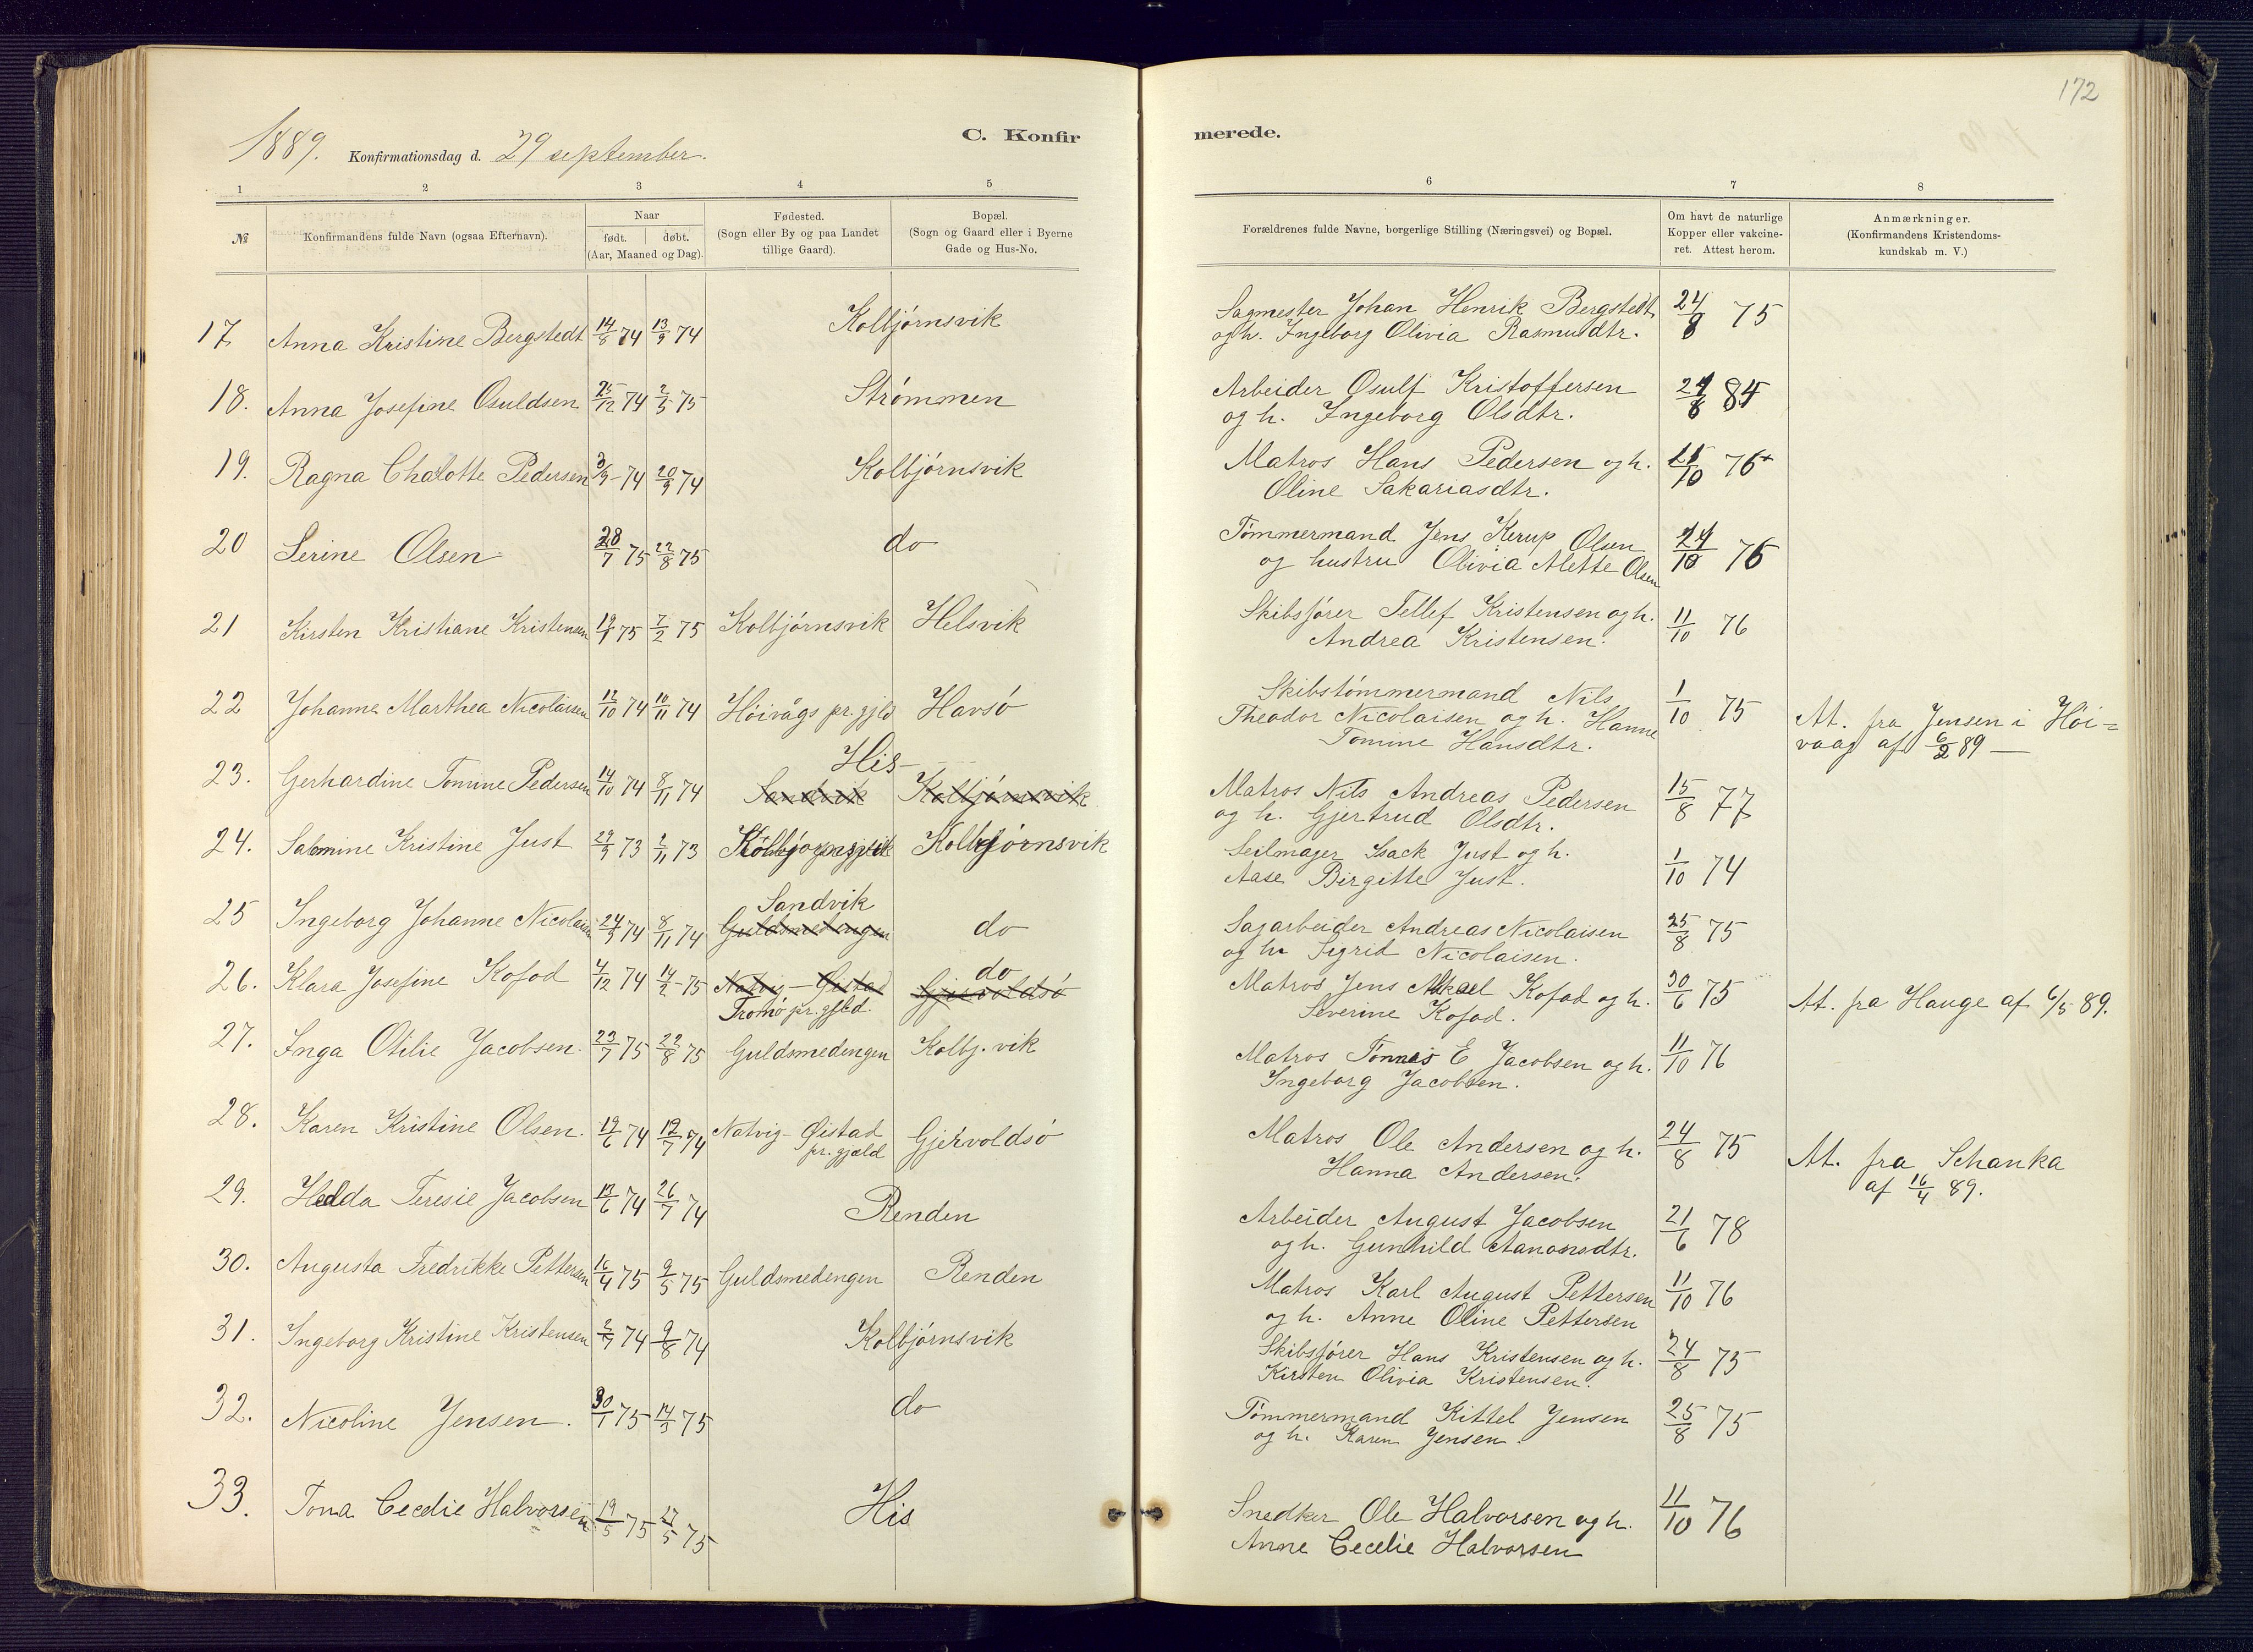 172
1889. Konfirmationsdag d. 29 september.
C. Konfirmerede.
1 2 3 4 5 6 7 8
№
Konfirmandens fulde Navn (ogsaa Efternavn).
Naar
født. døbt.
(Aar, Maaned og Dag).
Fødested.
(Sogn eller By og paa Landet
tillige Gaard).
Bopæl.
(Sogn og Gaard eller i Byerne
Gade og Hus-No.
Forældrenes fulde Navne, borgerlige Stilling (Næringsvei) og Bopæl.
Om havt de naturlige
Kopper eller vakcine-
ret. Attest herom.
Anmærkninger.
(Konfirmandens Kristendoms-
kundskab m. V.)
17 Anna Kristine Bergstedt 14/8 74 13/9 74 Kolbjørnsvik
Sagmester Johan Henrik Bergstedt 24/8 75
og h. Ingeborg Olivia Rasmusdtr.
18. Anna Josefine Osuldsen 25/12 74 2/5 75 Strømmen
Arbeider Osulf Kristoffersen 24/8 84
og h. Ingeborg Olsdtr.
19. Ragna Chalotte Pedersen 3/9 - 74 20/9 74 Kolbjørnsvik
Matros Hans Pedersen og h. 76
Oline Sakariasdtr.
20 Serine Olsen 28/7 75 22/8 75 do
Tømmermand Jens Kerup Olsen 24/10 76
og hustru Olivia Alette Olsen
21 Kirsten Kristiane Kristensen 75 7/2 75 Kolbjørnsvik Helsvik
Skibsfører Tellef Kristensen og h. 11/10 76
Andrea Kristensen.
22 Johanne Marthea Nicolaisen 12/10 74 10/11 74 Høivågs pr. gjld Havsø
Skibstømmermand Nils 1/10 75
Theodor Nicolaisen og h. Hanne
Tomine Hansdtr.
At. fra Jensen i Høi=
vaag af 6/2 89 —
23. Gerhardine Tomine Pedersen 14/10 74 8/11 74 His
Sandvik Kolbjørnsvik
Matros Nils Andreas Pedersen 15/8 77
og h. Gjertrud Olsdtr.
24. Salmine Kristine Just 29/9 73 2/11 73 Kolbjørnsvik Kolbjørnsvik
Seilmager Isack Just og h. 1/10 74
Aase Birgitte Just.
25 Ingeborg Johanne Nicolaisen 24/9 74 8/11 74 Sandvik
Guldsmedengen do
Sagarbeider Andreas Nicolaisen 25/8 75
og h Sigrid Nicolaisen.
26. Klara Josefine Kofod 4/12 74 14/2 - 75 Natvig - Øistad do
Tromø pr. gjld. Gjervoldsø
Matros Jens Mikael Kofod og h. 30/6 75
Severine Kofod.
At. fra Hauge af 6/5 89.
27. Inga Otilie Jacobsen. 23/7 75 22/8 75 Guldsmedengen Kolbj. vik
Matros Tønnes E Jacobsen og h. 11/10 76
Ingeborg Jacobsen.
28. Karen Kristine Olsen. 19/6 74 12/7 74 Natvig - Øistad
pr. gjæld Gjervoldsø
Matros Ole Andersen og h. 24/8 75
Hanna Andersen.
At. fra Schanka
af 16/4 89.
29. Hedda Teresie Jacobsen 74 26/7 74 Renden
Arbeider August Jacobsen 21/6 78
og h. Gunhild Aanonsdtr.
30. Augusta Fredrikke Pettersen 16/4 75 9/5 75 Guldsmedengen Renden
Matros Karl August Pettersen 11/10 76
og h. Anne Oline Pettersen
31. Ingeborg Kristine Kristensen 2/7 74 9/8 74 Kolbjørnsvik
Skibsfører Hans Kristensen og h. 24/8 75
Kirsten Olivia Kristensen.
32. Nicoline Jensen. 30/1 75 14/3 75 do
Tømmermand Kittel Jensen 25/8 75
og h. Karen Jensen.
33. Tona Cecelie Halvorsen 19/5 75 27/5 75 His
Snedker Ole Halvorsen og h. 11/10 76
Anne Cecelie Halvorsen